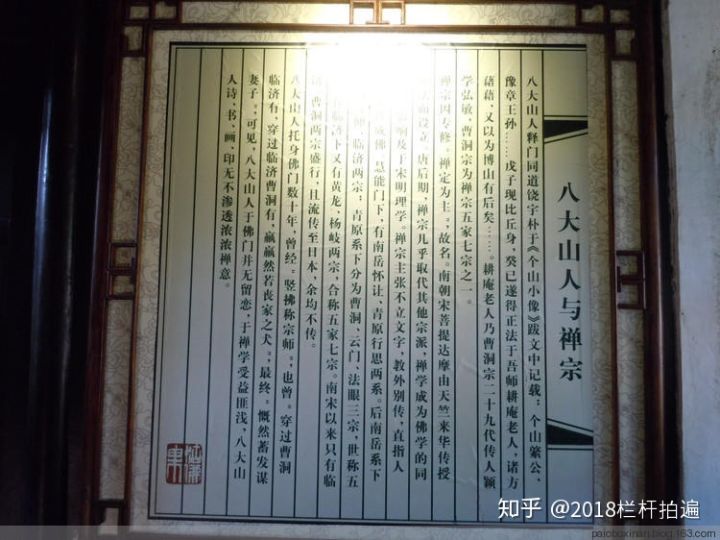 八大山人与禅宗
八大山人释门同道饶宇朴于《个山小像》跋文中记载：个山綮公，
豫章王孙……戊子现比丘身，癸巳遂得正法于吾师耕庵老人，诸方
藉藉，又以为博山有后矣……。耕庵老人乃曹洞宗二十九代传人颖
学弘敏，曹洞宗为禅宗五家七宗之一。
禅宗因专修“禅定为主”，故名。南朝宋菩提达摩由天竺来华传授
而设立，唐后期，禅宗几乎取代其他宗派，禅学成为佛学的同
响及于宋明理学。禅宗主张不立文字，教外别传，直指人
成佛。慧能门下，有南岳怀让、青原行思两系。后南岳系下
仰、临济两宗；青原系下分为曹洞、云门、法眼三宗，世称五
临济下又有黄龙、杨岐两宗，合称五家七宗。南宋以来只有临
曹洞两宗盛行，且流传至日本，余均不传。
八大山人托身佛门数十年，曾经“竖拂称宗师”，也曾“穿过曹洞
临济有，穿过临济曹洞有，羸羸然若丧家之犬”，最终“慨然蓄发谋
妻子”，可见，八大山人于佛门并无留恋，于禅学受益匪浅，八大山
人诗、书、画、印无不渗透浓浓禅意。
知乎 @2018栏杆拍遍
paioboxinan.blog.163.com